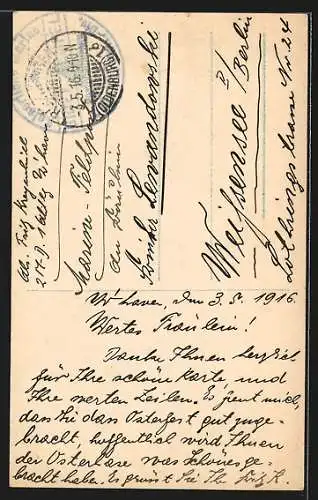 Marine-Feldpost
An Fräulein
Lewandowski
Weißensee b/Berlin
Lothringstrasse Nr 24
Abs. Fritz
3.5.16.
W'haven, den 3.5.1916.
Wertes Fräulein!
Danke Ihnen herzlich
für Ihre schöne Karte, und
Ihre werten Zeilen. Es freut mich,
dass Sie das Osterfest gut zuge-
bracht, hoffentlich wird Ihnen
der Osterhase was Schönes ge-
bracht haben. Es grüsst Sie Ihr Fritz K.